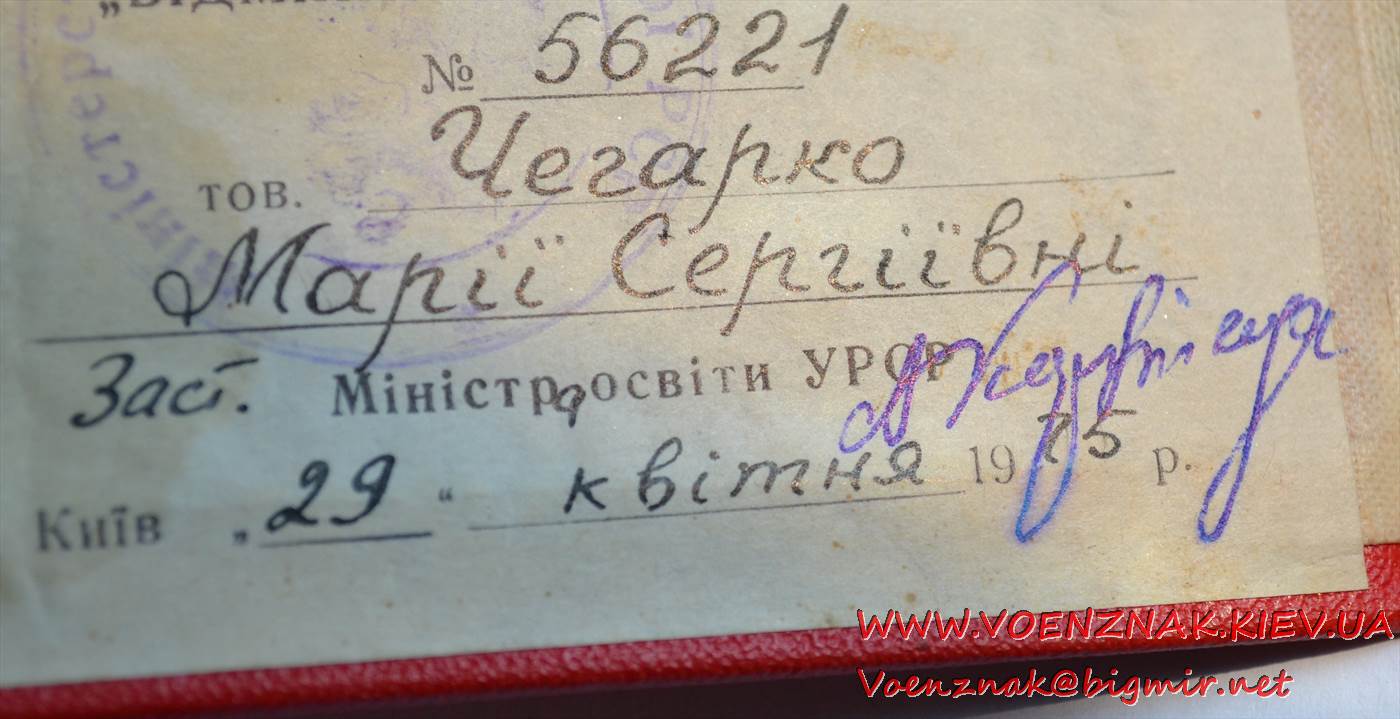 № 56221
тов. Чегарко
Марії Сергіївні
Заст. Міністра освіти УРСР
Київ „29“ квітня 1975 р.
WWW.VOENZNAK.KIEV.UA
Voenznak@bigmir.net